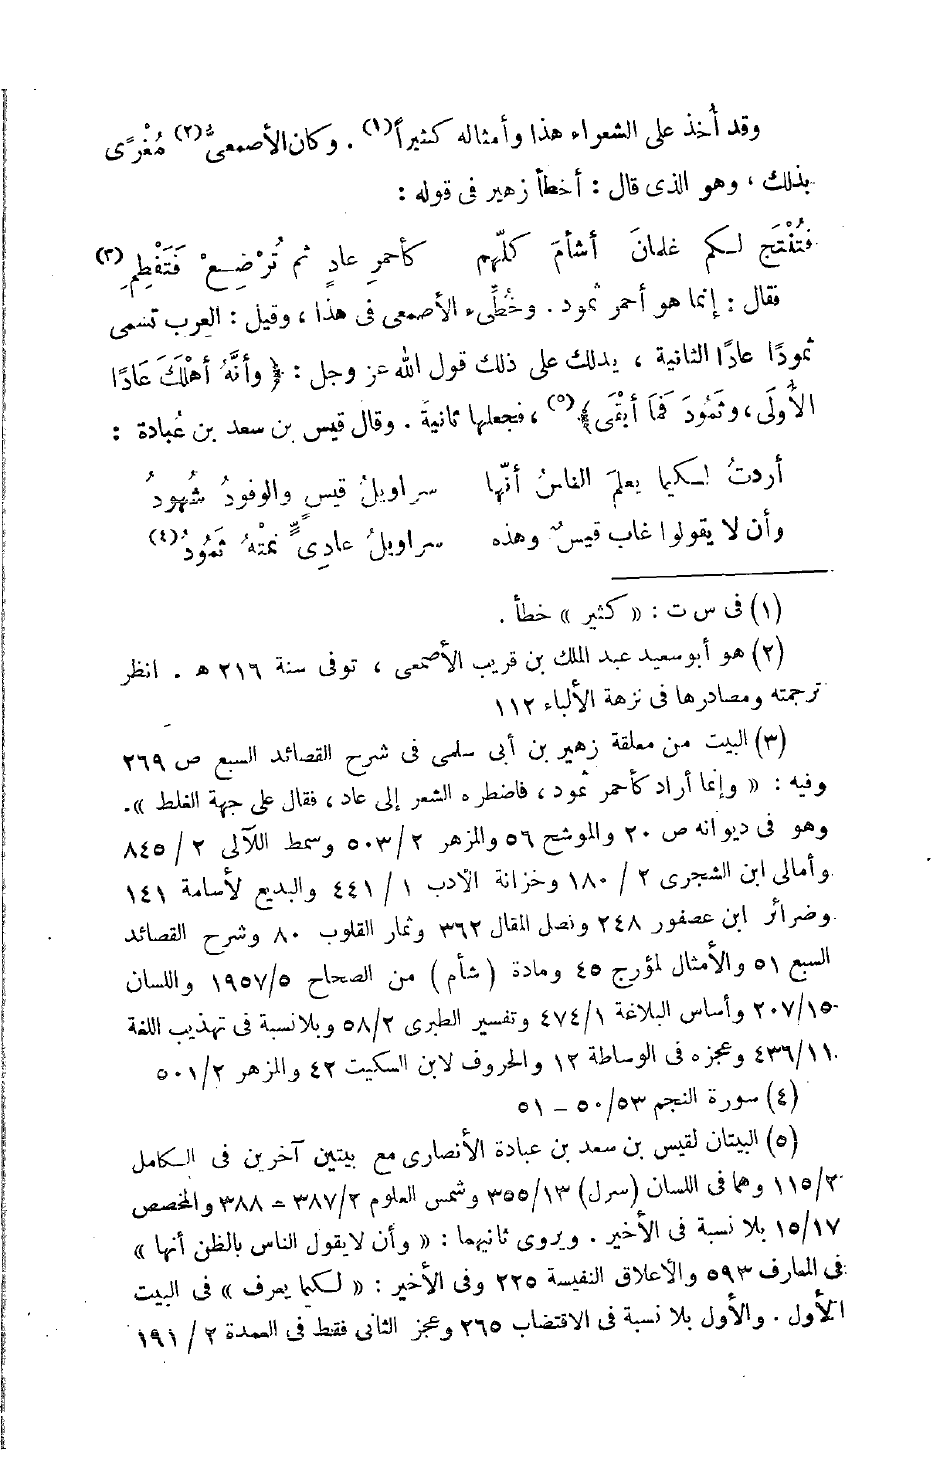 وقد أُخذ على الشعراء هذا وأمثاله كثيراً(١) . وكان الأصمعىُّ(٢) مُغْرًى
بذلك ، وهو الذى قال : أخطأ زهير فى قوله :
فَتُنْتَج لكم غلمانَ أشأمَ كلّهم كأحمرِ عادٍ ثم تُرْضِعْ فَتَفْطِمِ(٣)
فقال : إنما هو أحمر ثمود . وخُطِّىء الأصمعى فى هذا ، وقيل : العرب تسمى
ثمودًا عادًا الثانية ، يدلك على ذلك قول الله عز وجل : ﴿ وأنَّهُ أهْلَكَ عَادًا
الأُولَى ، وثَمُودَ فَمَا أبْقَى ﴾(٥) ، فجعلها ثانيةً . وقال قيس بن سعد بن عُبادة :
أردتُ لكيما يعلمَ الناسُ أنّها سراويلُ قيسٍ والوفودُ شُهودُ
وأن لا يقولوا غاب قيسٌ وهذه سراويلُ عادِىٍّ نمتْهُ ثَمُودُ(٤)
(١) فى س ت : « كثير » خطأ .
(٢) هو أبو سعيد عبد الملك بن قريب الأصمعى ، توفى سنة ٢١٦ هـ . انظر
ترجمته ومصادرها فى نزهة الألباء ١١٢
(٣) البيت من معلقة زهير بن أبى سلمى فى شرح القصائد السبع ص ٢٦٩
وفيه : « وإنما أراد كأحمر ثمود ، فاضطره الشعر إلى عاد ، فقال على جهة الغلط ».
وهو فى ديوانه ص ٢٠ والموشح ٥٦ والمزهر ٢/ ٥٠٣ وسمط اللآلى ٢ / ٨٤٥
وأمالى ابن الشجرى ٢ / ١٨٠ وخزانة الأدب ١ / ٤٤١ والبديع لأسامة ١٤١
وضرائر ابن عصفور ٢٤٨ وفصل المقال ٣٦٢ وثمار القلوب ٨٠ وشرح القصائد
السبع ٥١ والأمثال لمؤرج ٤٥ ومادة ( شأم ) من الصحاح ١٩٥٧/٥ واللسان
٢٠٧/١٥ وأساس البلاغة ٤٧٤/١ وتفسير الطبرى ٥٨/٢ وبلانسبة فى تهذيب اللغة
٤٣٦/١١ وعجزه فى الوساطة ١٢ والحروف لابن السكيت ٤٢ والمزهر ٥٠١/٢
(٤) سورة النجم ٥٠/٥٣ – ٥١
(٥) البيتان لقيس بن سعد بن عبادة الأنصارى مع بيتين آخرين فى الكامل
١١٥/٢ وهما فى اللسان (سرل) ٣٥٥/١٣ وشمس العلوم ٣٨٧/٢ – ٣٨٨ والمخصص
١٥/١٧ بلا نسبة فى الأخير . ويروى ثانيهما : « وأن لايقول الناس بالظن أنها »
فى المعارف ٥٩٣ والأعلاق النفيسة ٢٢٥ وفى الأخير : « لكيما يعرف » فى البيت
الأول . والأول بلا نسبة فى الاقتضاب ٢٦٥ وعجز الثانى فقط فى العمدة ٢ / ١٩١